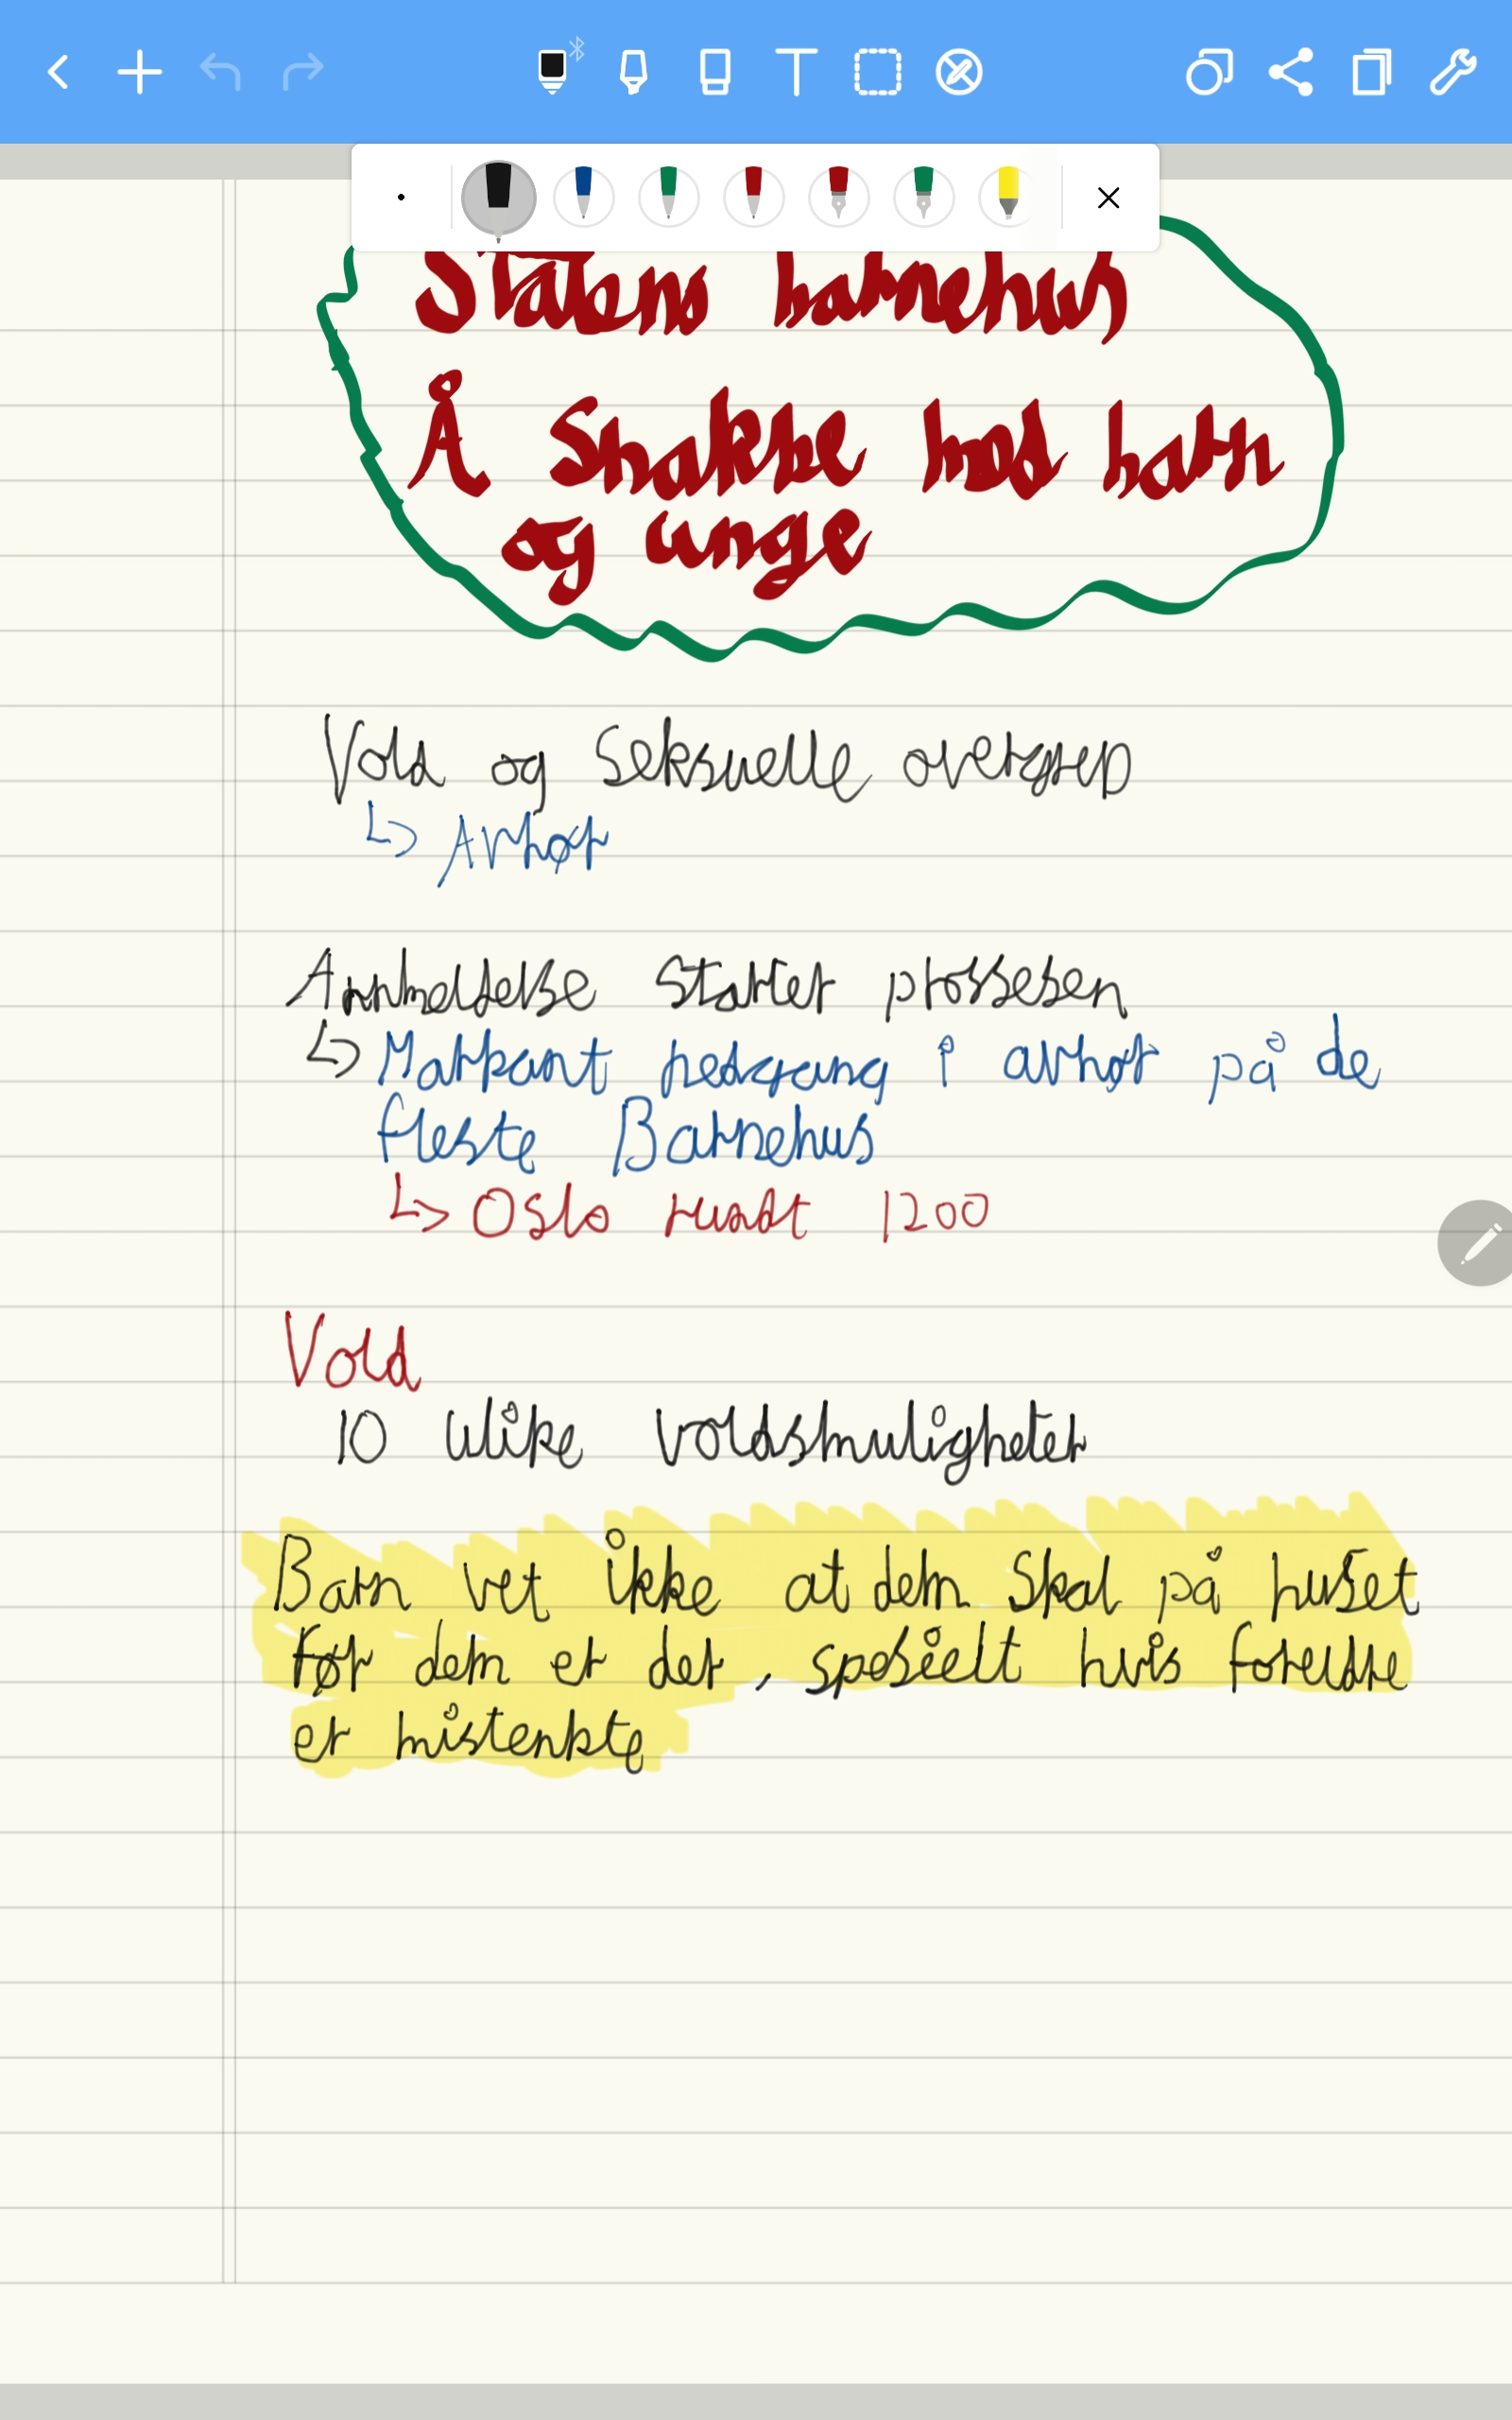 Statens barnehus
Å snakke med barn
og unge
Vold og seksuelle overgrep
↳ Avhør
Anmeldelse starter prossesen
↳ Markant nedgang i avhør på de
fleste Barnehus
↳ Oslo rundt 1200
Vold
10 ulike voldsmuligheter
Barn vet ikke at dem skal på huset
før dem er der, spesielt hvis foreldre
er mistenkte